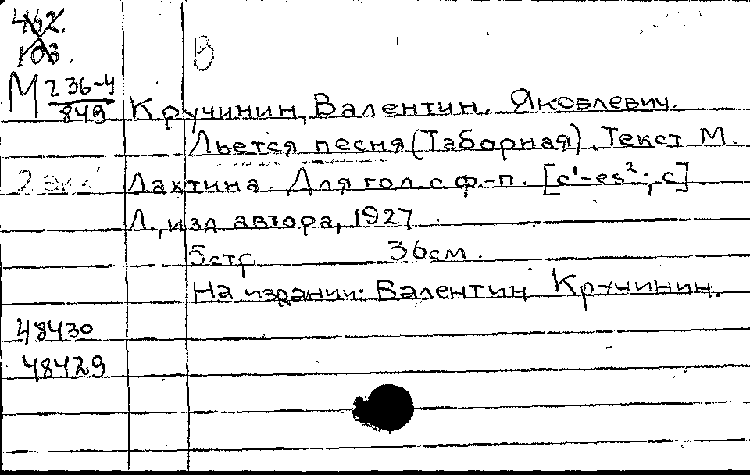 462.
103.
В
М 236-4
849
Кручинин, Валентин Яковлевич.
Льется песня (Таборная). Текст М.
2 экз
Лахтина. Для гол. с ф.-п. [c¹-es²; c]
Л., изд. автора, 1927.
5 стр. 36 см.
На издании: Валентин Кручинин.
48430
48429